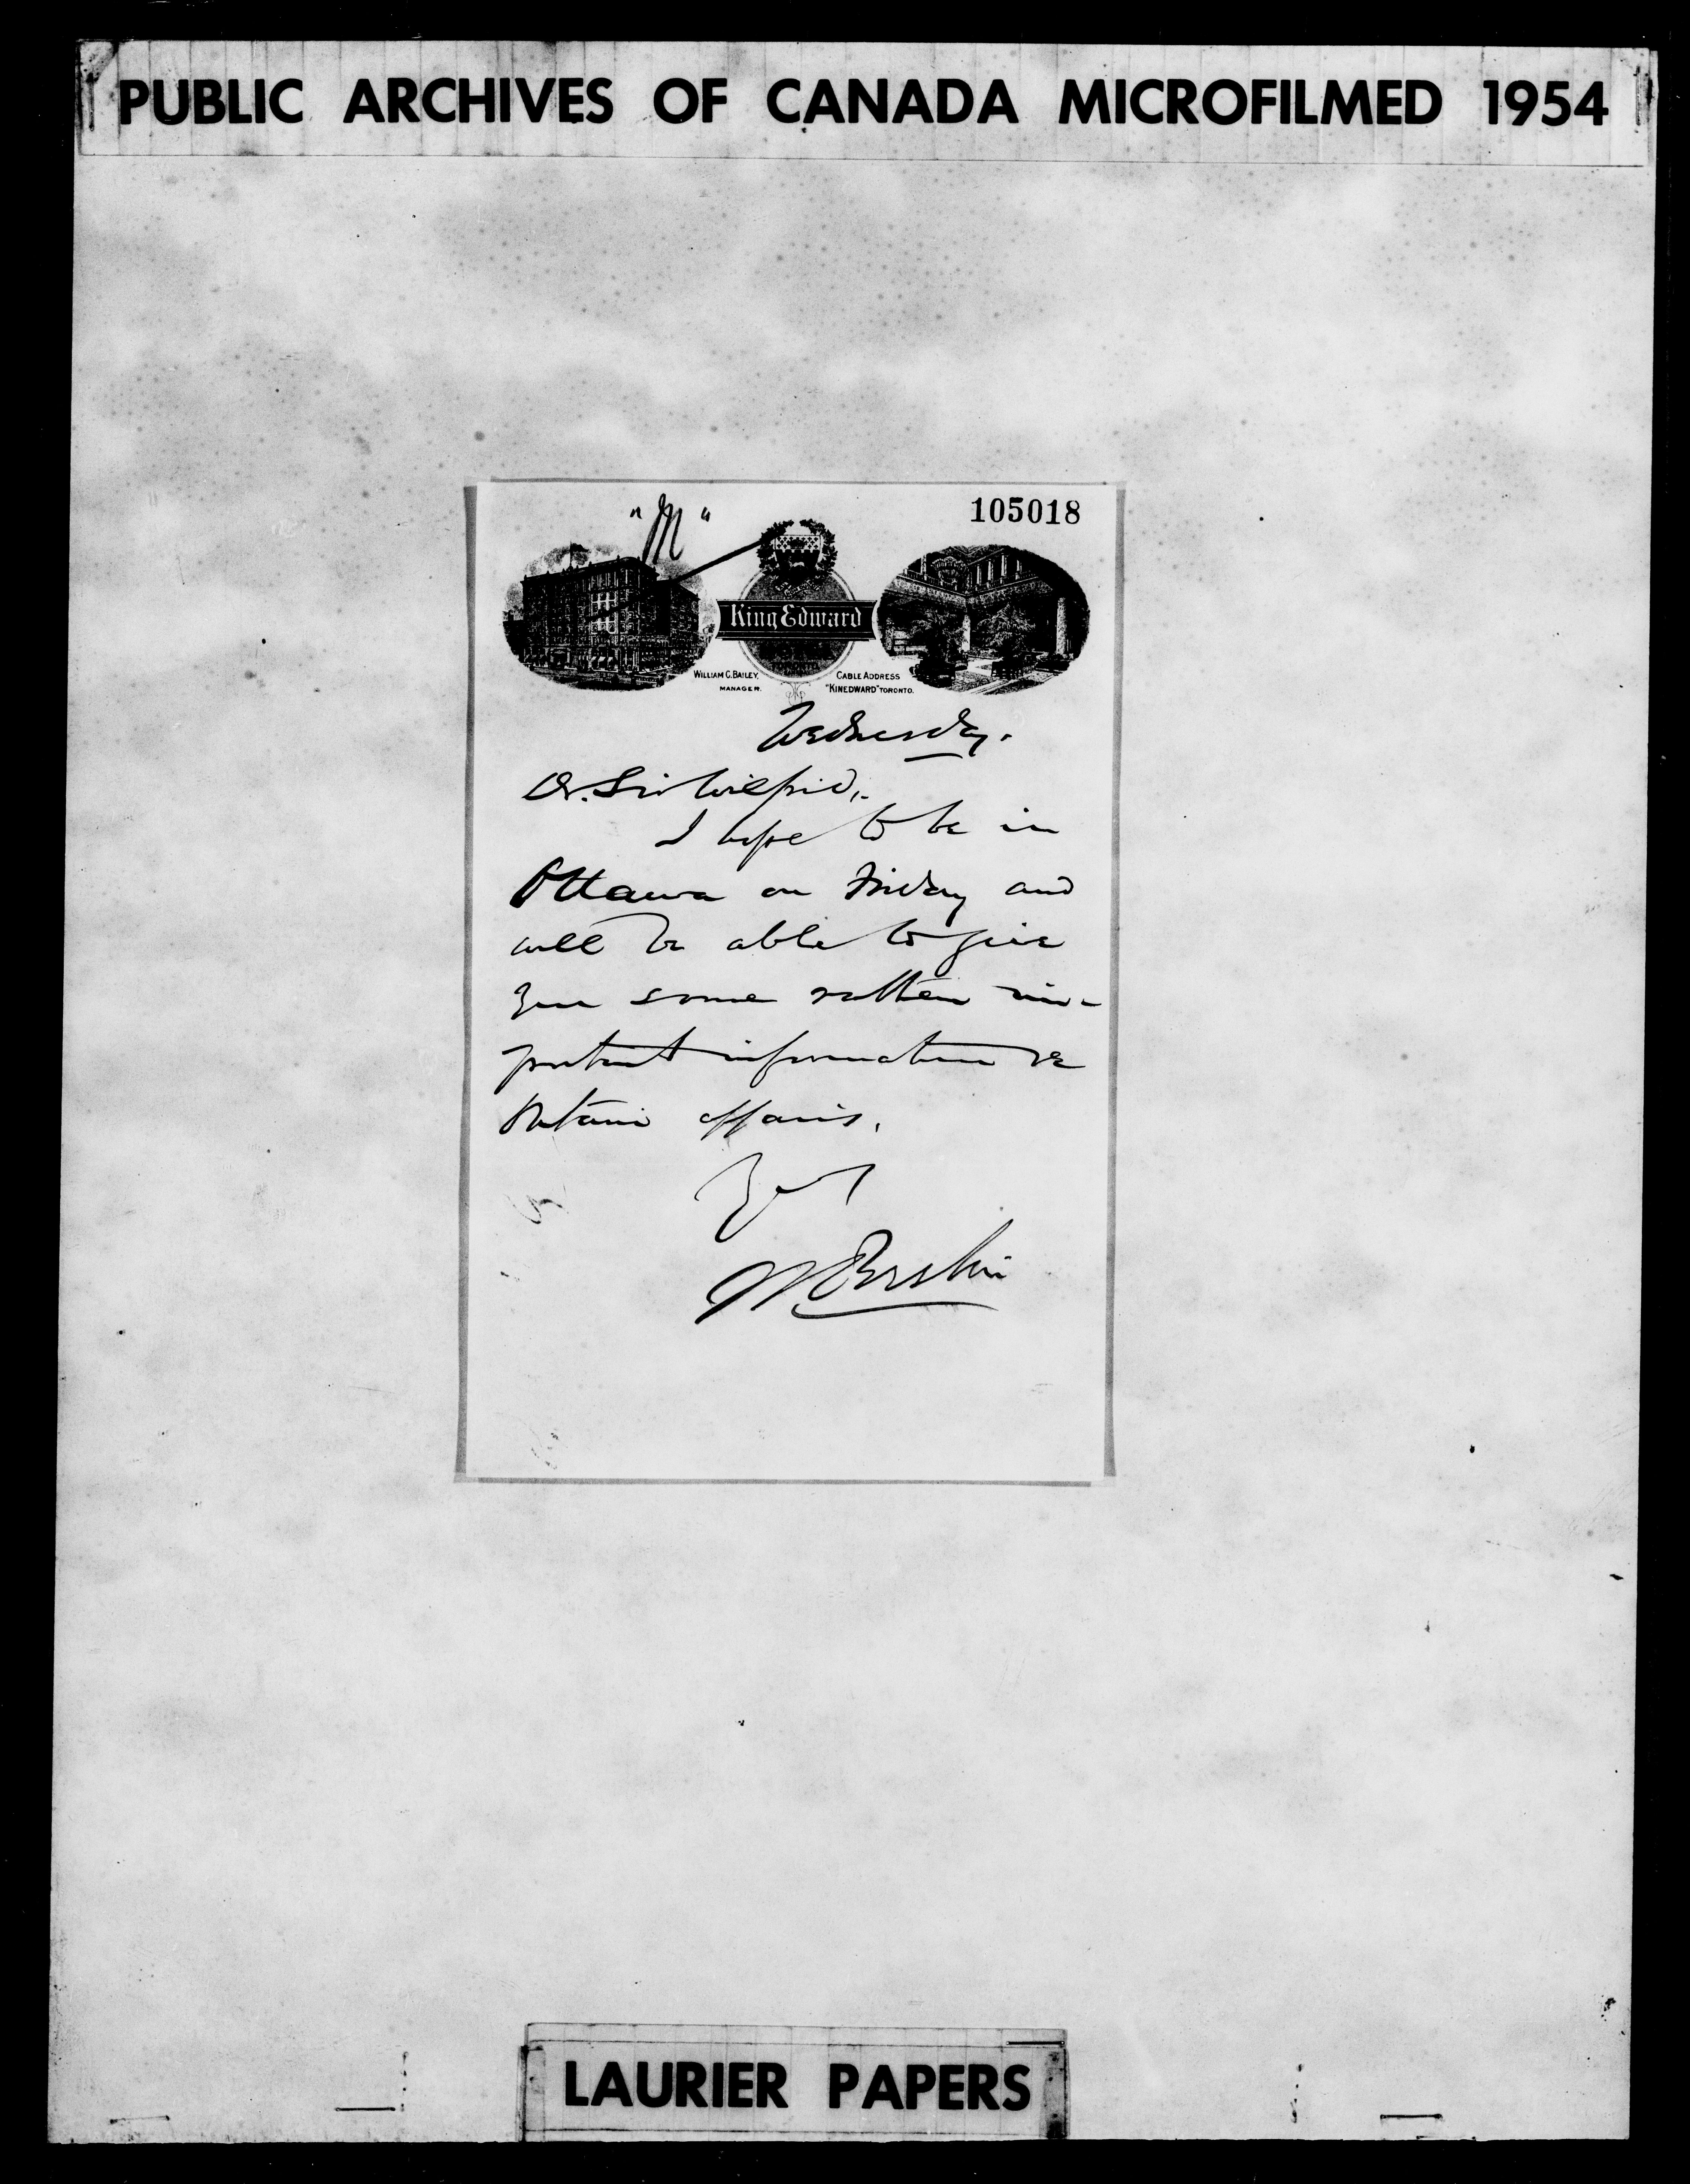 PUBLIC ARCHIVES OF CANADA MICROFILMED 1954
"M"
105018
King Edward
TORONTO.
WILLIAM G. BAILEY,
MANAGER.
CABLE ADDRESS
"KINEDWARD" TORONTO.
Wednesday.
Dr. Sir Wilfrid,
I hope to be in
Ottawa on Friday and
will be able to give
you some rather im-
portant information re
Ontario affairs.
Yours
LAURIER PAPERS